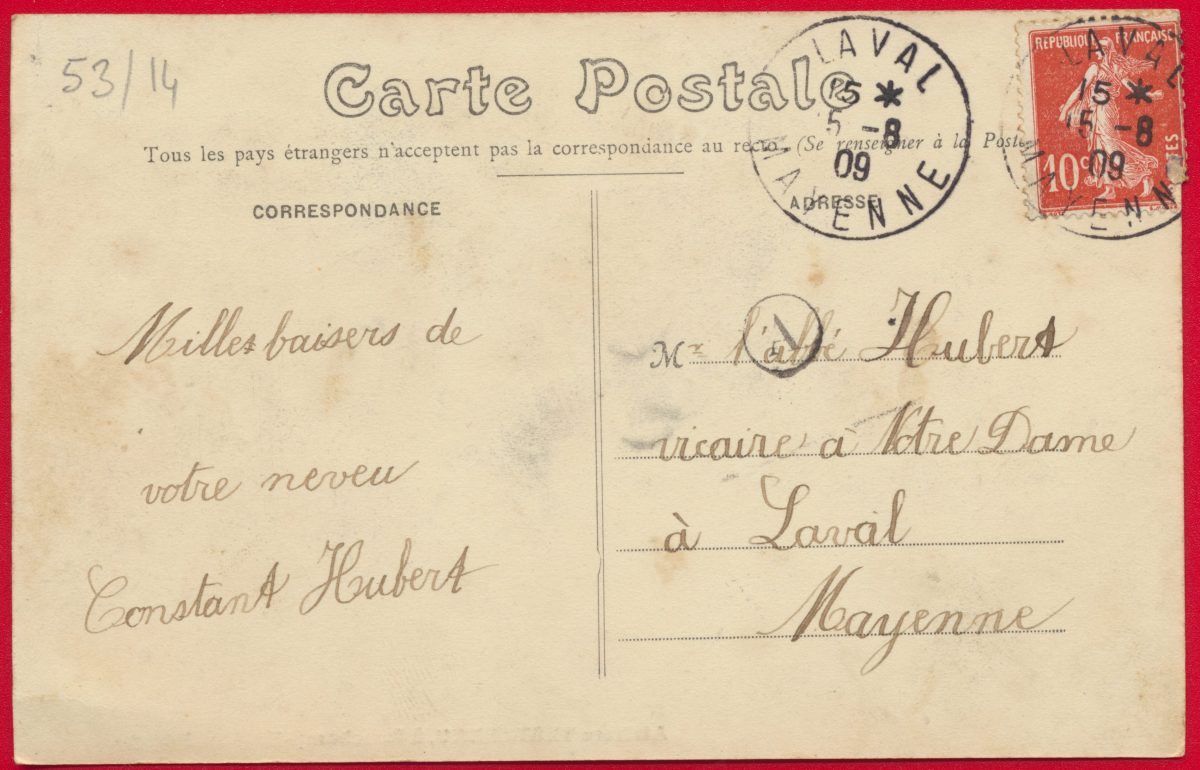 53/14
Carte Postale
Tous les pays étrangers n'acceptent pas la correspondance au recto. (Se renseigner à la Poste
CORRESPONDANCE
ADRESSE
LAVAL
15 *
15 -8
09
MAYENNE
REPUBLIQUE FRANÇAISE
10 c
LAVAL
15 *
15 -8
09
MAYENN
Milles baisers de
votre neveu
Constant Hubert
Mr l'abbé Hubert
vicaire à Notre Dame
à Laval
Mayenne